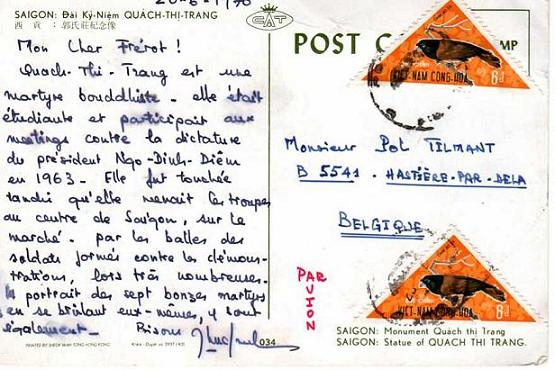 20-6-1970
SAIGON: Đài Kỷ-Niệm QUÁCH-THỊ-TRANG
CAT
POST
Mon Cher Frérot !
Quach-Thi-Trang est une
martyre bouddhiste - elle était
étudiante et participait aux
meetings contre la dictature
du président Ngo-Dinh-Diêm
en 1963. Elle fut touchée
tandis qu'elle menait les troupes
au centre de Saïgon, sur le
marché. par les balles des
soldats formés contre les démons-
trations, lors très nombreuses.
le portrait des sept bonzes martyrs
en se brûlant eux-mêmes, y sont
également - Bisous
VIỆT-NAM CỘNG-HÒA
6đ
Monsieur Pol TILMANT
B 5541 - HASTIÈRE-PAR-DELA
BELGIQUE
PAR
AVION
VIỆT-NAM CỘNG-HÒA
6đ
034
SAIGON: Monument Quách thị Trang
SAIGON: Statue of QUACH THI TRANG.